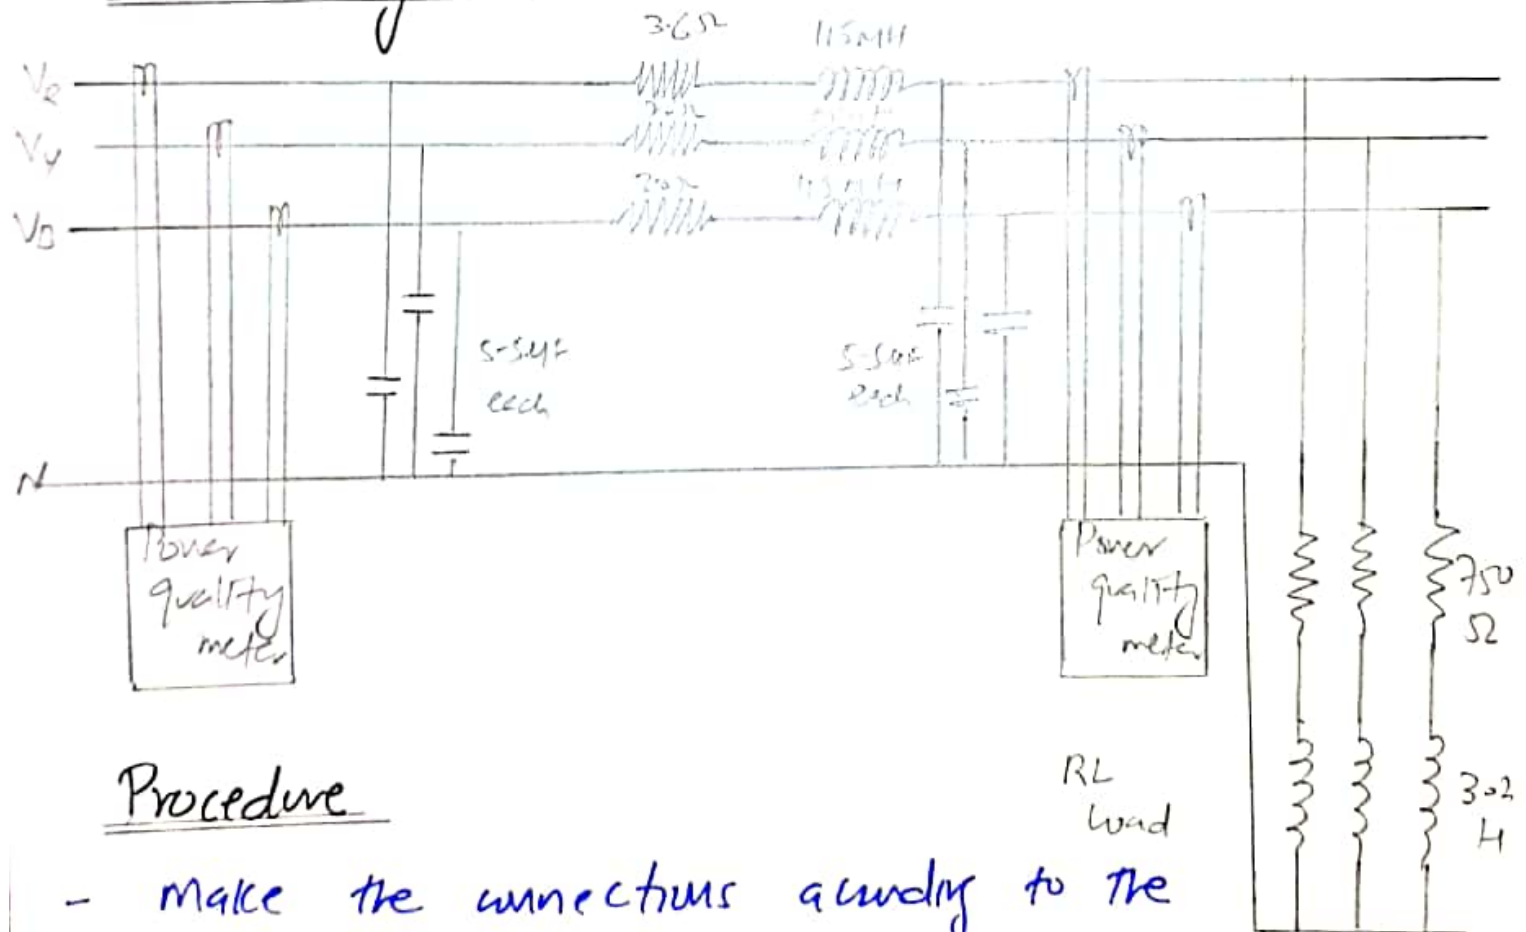 3.6Ω
115MH
VR
VY
VB
5-5μF
each
5-5μF
each
N
Power
quality
meter
Power
quality
meter
750
Ω
RL
Load
3.2
H
Procedure
- Make the connections acunding to the